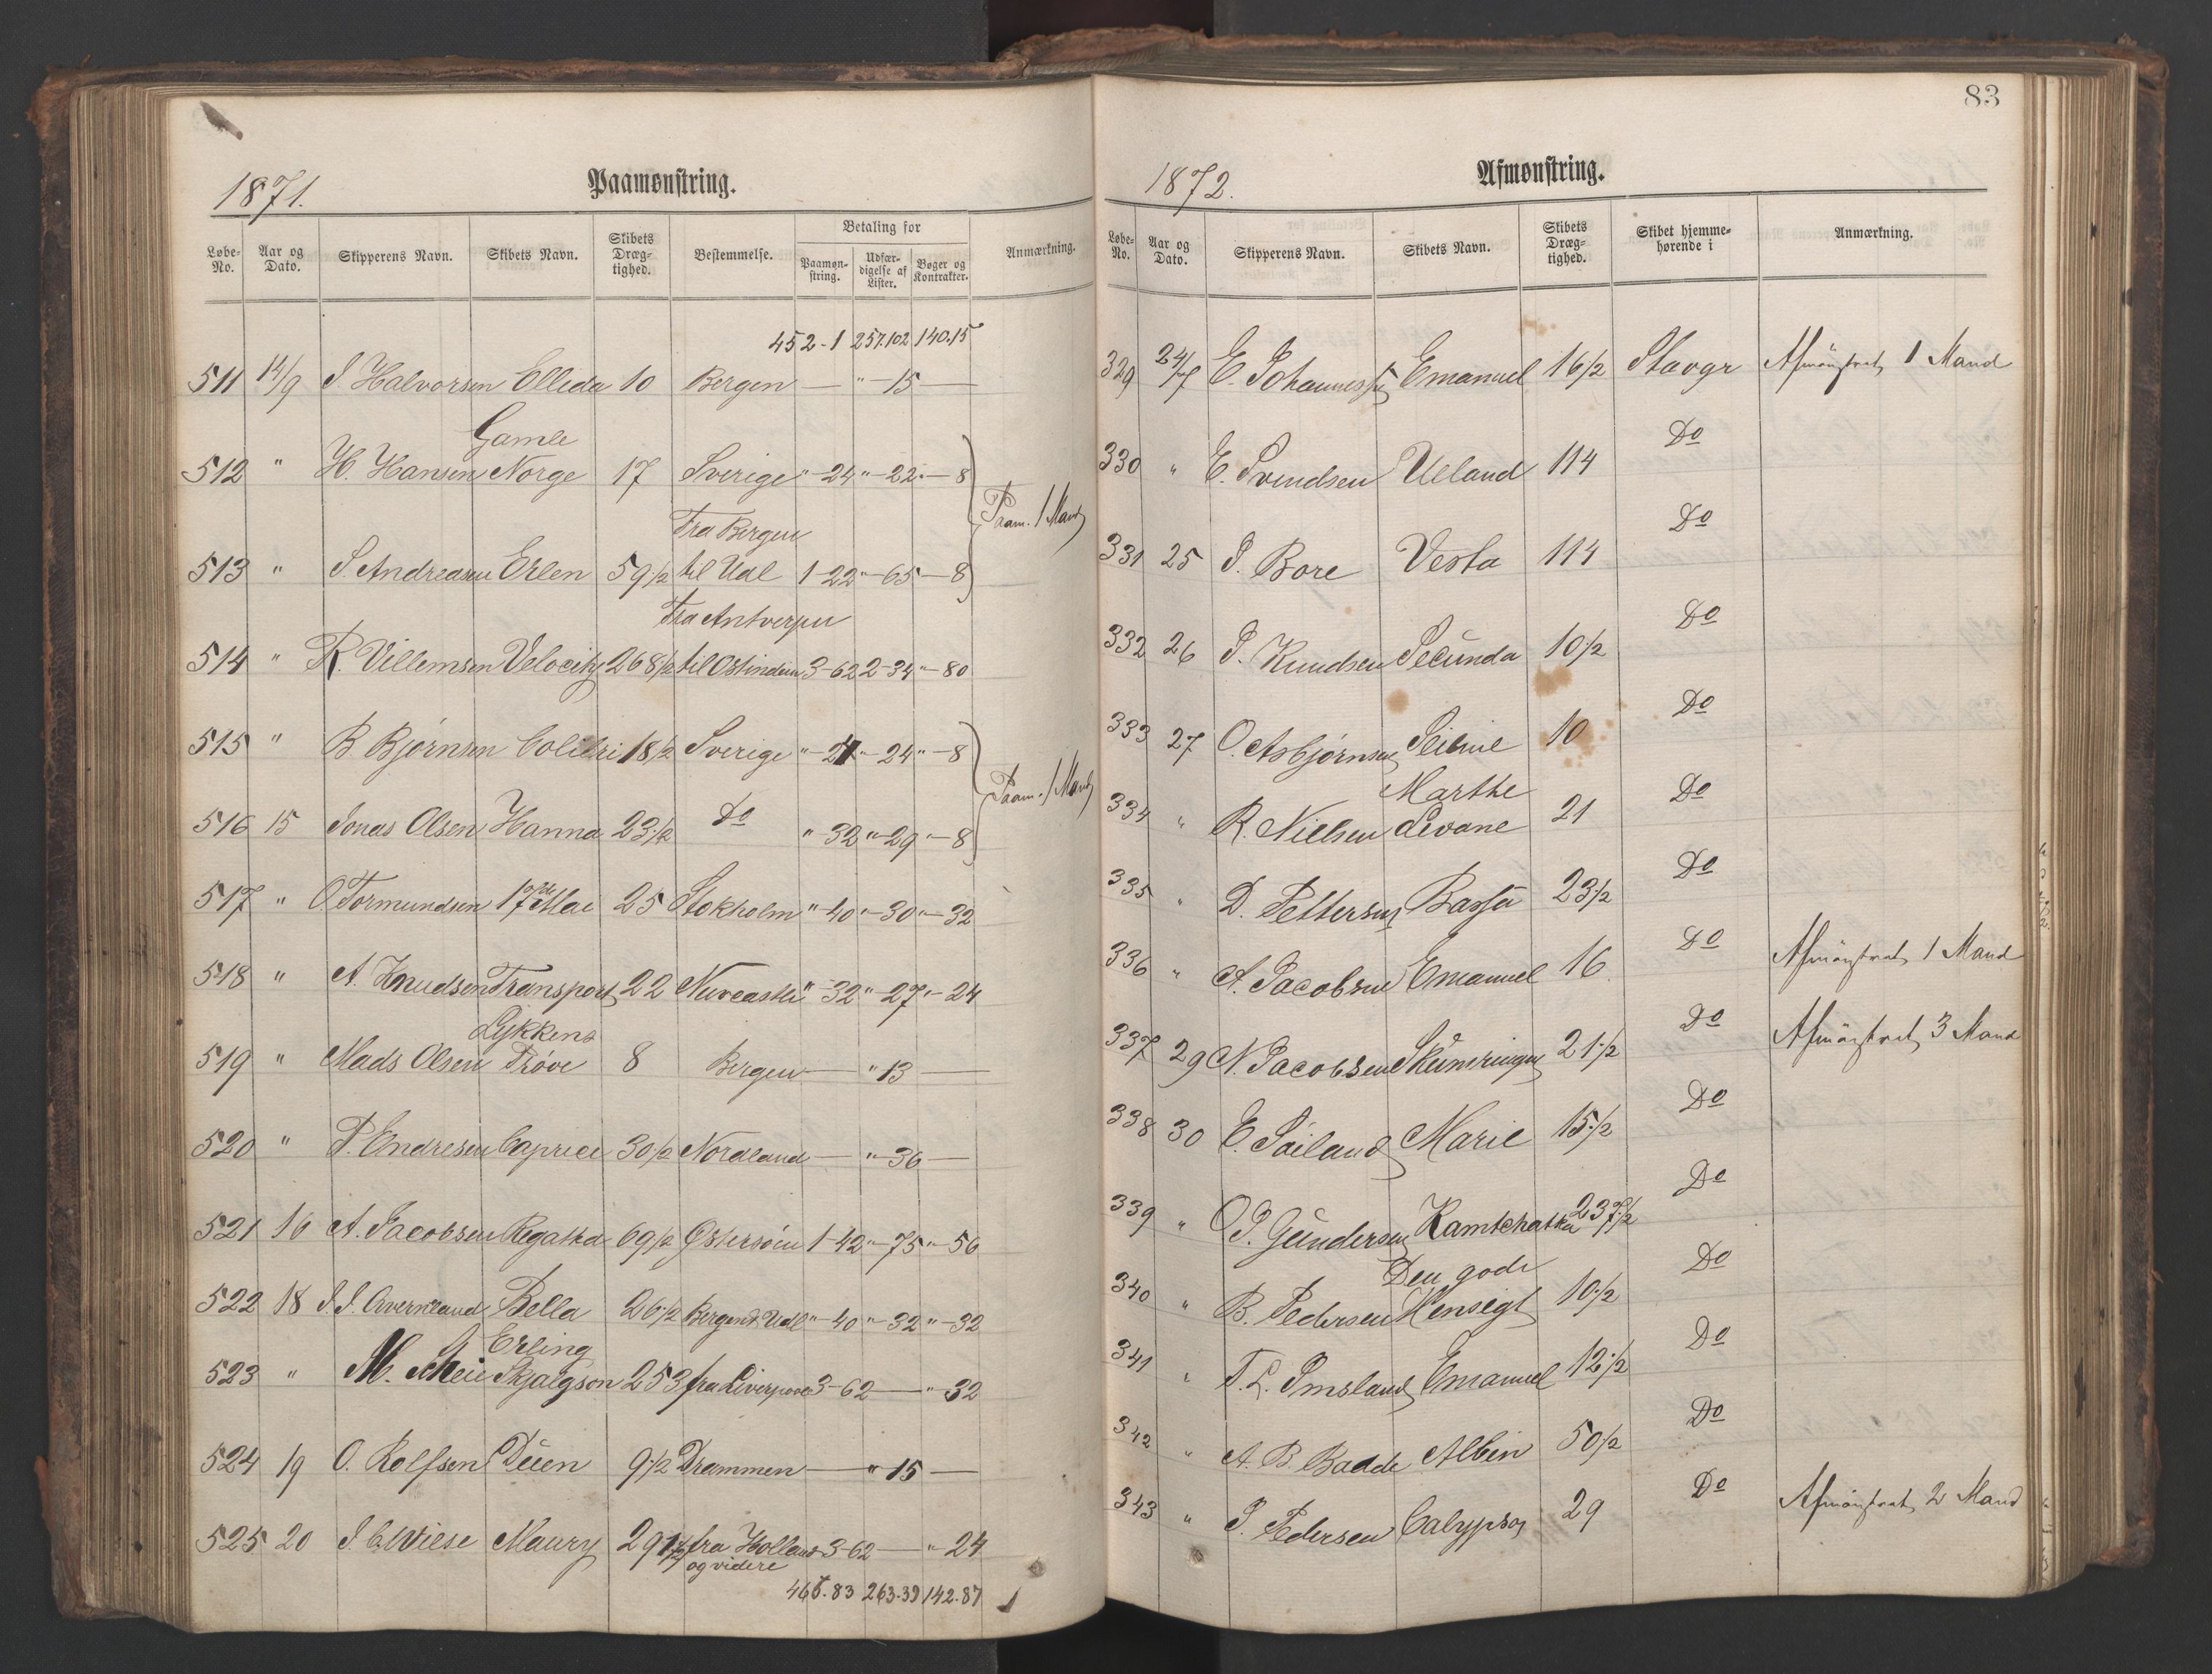 1871.
Paamønstring.
Løbe-No. Aar og Dato. Skipperens Navn. Skibets Navn. Skibets Dræg-tighed. Bestemmelse. Betaling for Paamøn-string. Udfær-digelse af Lister. Bøger og Kontrakter. Anmærkning.
452-1 257.102 140.15
511 14/9 S. Halvorsen Ellida 10 Bergen — " - 15 —
Gamle
512 " H. Hansen Norge 17 Sverige " - 24 " - 22 " - 8
Paam. 1 Mand
Fra Bergen
513 " S. Andreasen Erlen 59 1/2 til Udl 1 - 22 " - 65 - 8
Fra Antverpen
514 " R. Villemsen Velocity 268 1/2 til Ostindien 3 - 62 2 - 34 " - 80
515 " B. Bjørnsen Colibri 18 1/2 Sverige " - 24 " - 24 " - 8
Paam. 1 Mand
516 15 Jonas Olsen Hanna 23 1/2 Do " - 32 " - 29 " - 8
517 " O Tormundsen 17de Mai 25 Stokholm " - 40 " - 30 " - 32
518 " A. Knudsen Transport 22 Nuveastle " - 32 " - 27 " - 24
Lykkens
519 " Mads Olsen Prøve 8 Bergen — " 13 —
520 " P. Endresen Caprice 30 1/2 Nordland — " - 36 —
521 16 A. Jacobsen Regatta 69 1/2 Østersøen 1 - 42 " - 75 " - 56
522 18 Bella 26 1/2 Bergen & Udl " - 40 " - 32 " - 32
Erling
523 " M. Skjalgson 253 fra Liverpool 3 - 62 — " - 32
524 19 O. Rolfsen Duen 9 1/2 Drammen — " 15 —
525 20 J. C. Wiese Maury 291 1/2 fra Holland 3 - 62 — " 24
og videre
466.83 263.39 142.87
83
1872.
Afmønstring.
Løbe-No. Aar og Dato. Skipperens Navn. Skibets Navn. Skibets Dræg-tighed. Skibet hjemme-hørende i Anmærkning.
329 24/7 E. Johannessen Emanuel 16 1/2 Stavgr Afmönstret 1 Mand
330 " E. Svendsen Ueland 114 Do
331 25 S. Bore Vesta 114 Do
332 26 P. Knudsen Secunda 10 1/2 Do
333 27 O. Asbjørnsen 10 Do
Marthe
334 " R. Nielsen Levane 21 Do
335 " D. Pettersen 23 1/2 Do
336 " A. Jacobsen Emanuel 16 Do Afmönstret 1 Mand
337 29 N. Jacobsen Skumringen 21 1/2 Do Afmönstret 3 Mand
338 30 E. Söiland Marie 15 1/2 Do
339 " O. S. Gundersen Kamtchatka 237 1/2 Do
Den gode
340 " B. Pedersen Hensigt 10 1/2 Do
341 " T. L. Imsland Emanuel 12 1/2 Do
342 " A. B. Badde Albin 50 1/2 Do
343 " P. Pedersen Calypso 29 Do Afmönstret 2 Mand